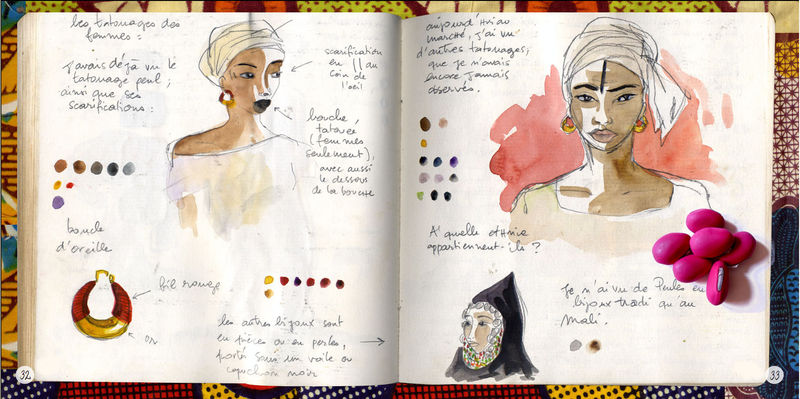 les tatouages des
femmes :
j'avais déjà vu le
tatouage peul ;
ainsi que ses
scarifications :
scarification
en || au
coin de
l'oeil
bouche
tatouée
(femmes
seulement),
avec aussi
le dessous
de la bouche
boucle
d'oreille
fil rouge
or
les autres bijoux sont
en pièces ou en perles,
portés sous un voile ou
capuchon noir
32
aujourd'hui au
marché, j'ai vu
d'autres tatouages ;
que je n'avais
encore jamais
observés.
A quelle ethnie
appartiennent-ils ?
Je n'ai vu de Peules en
bijoux tradi qu'au
Mali.
33